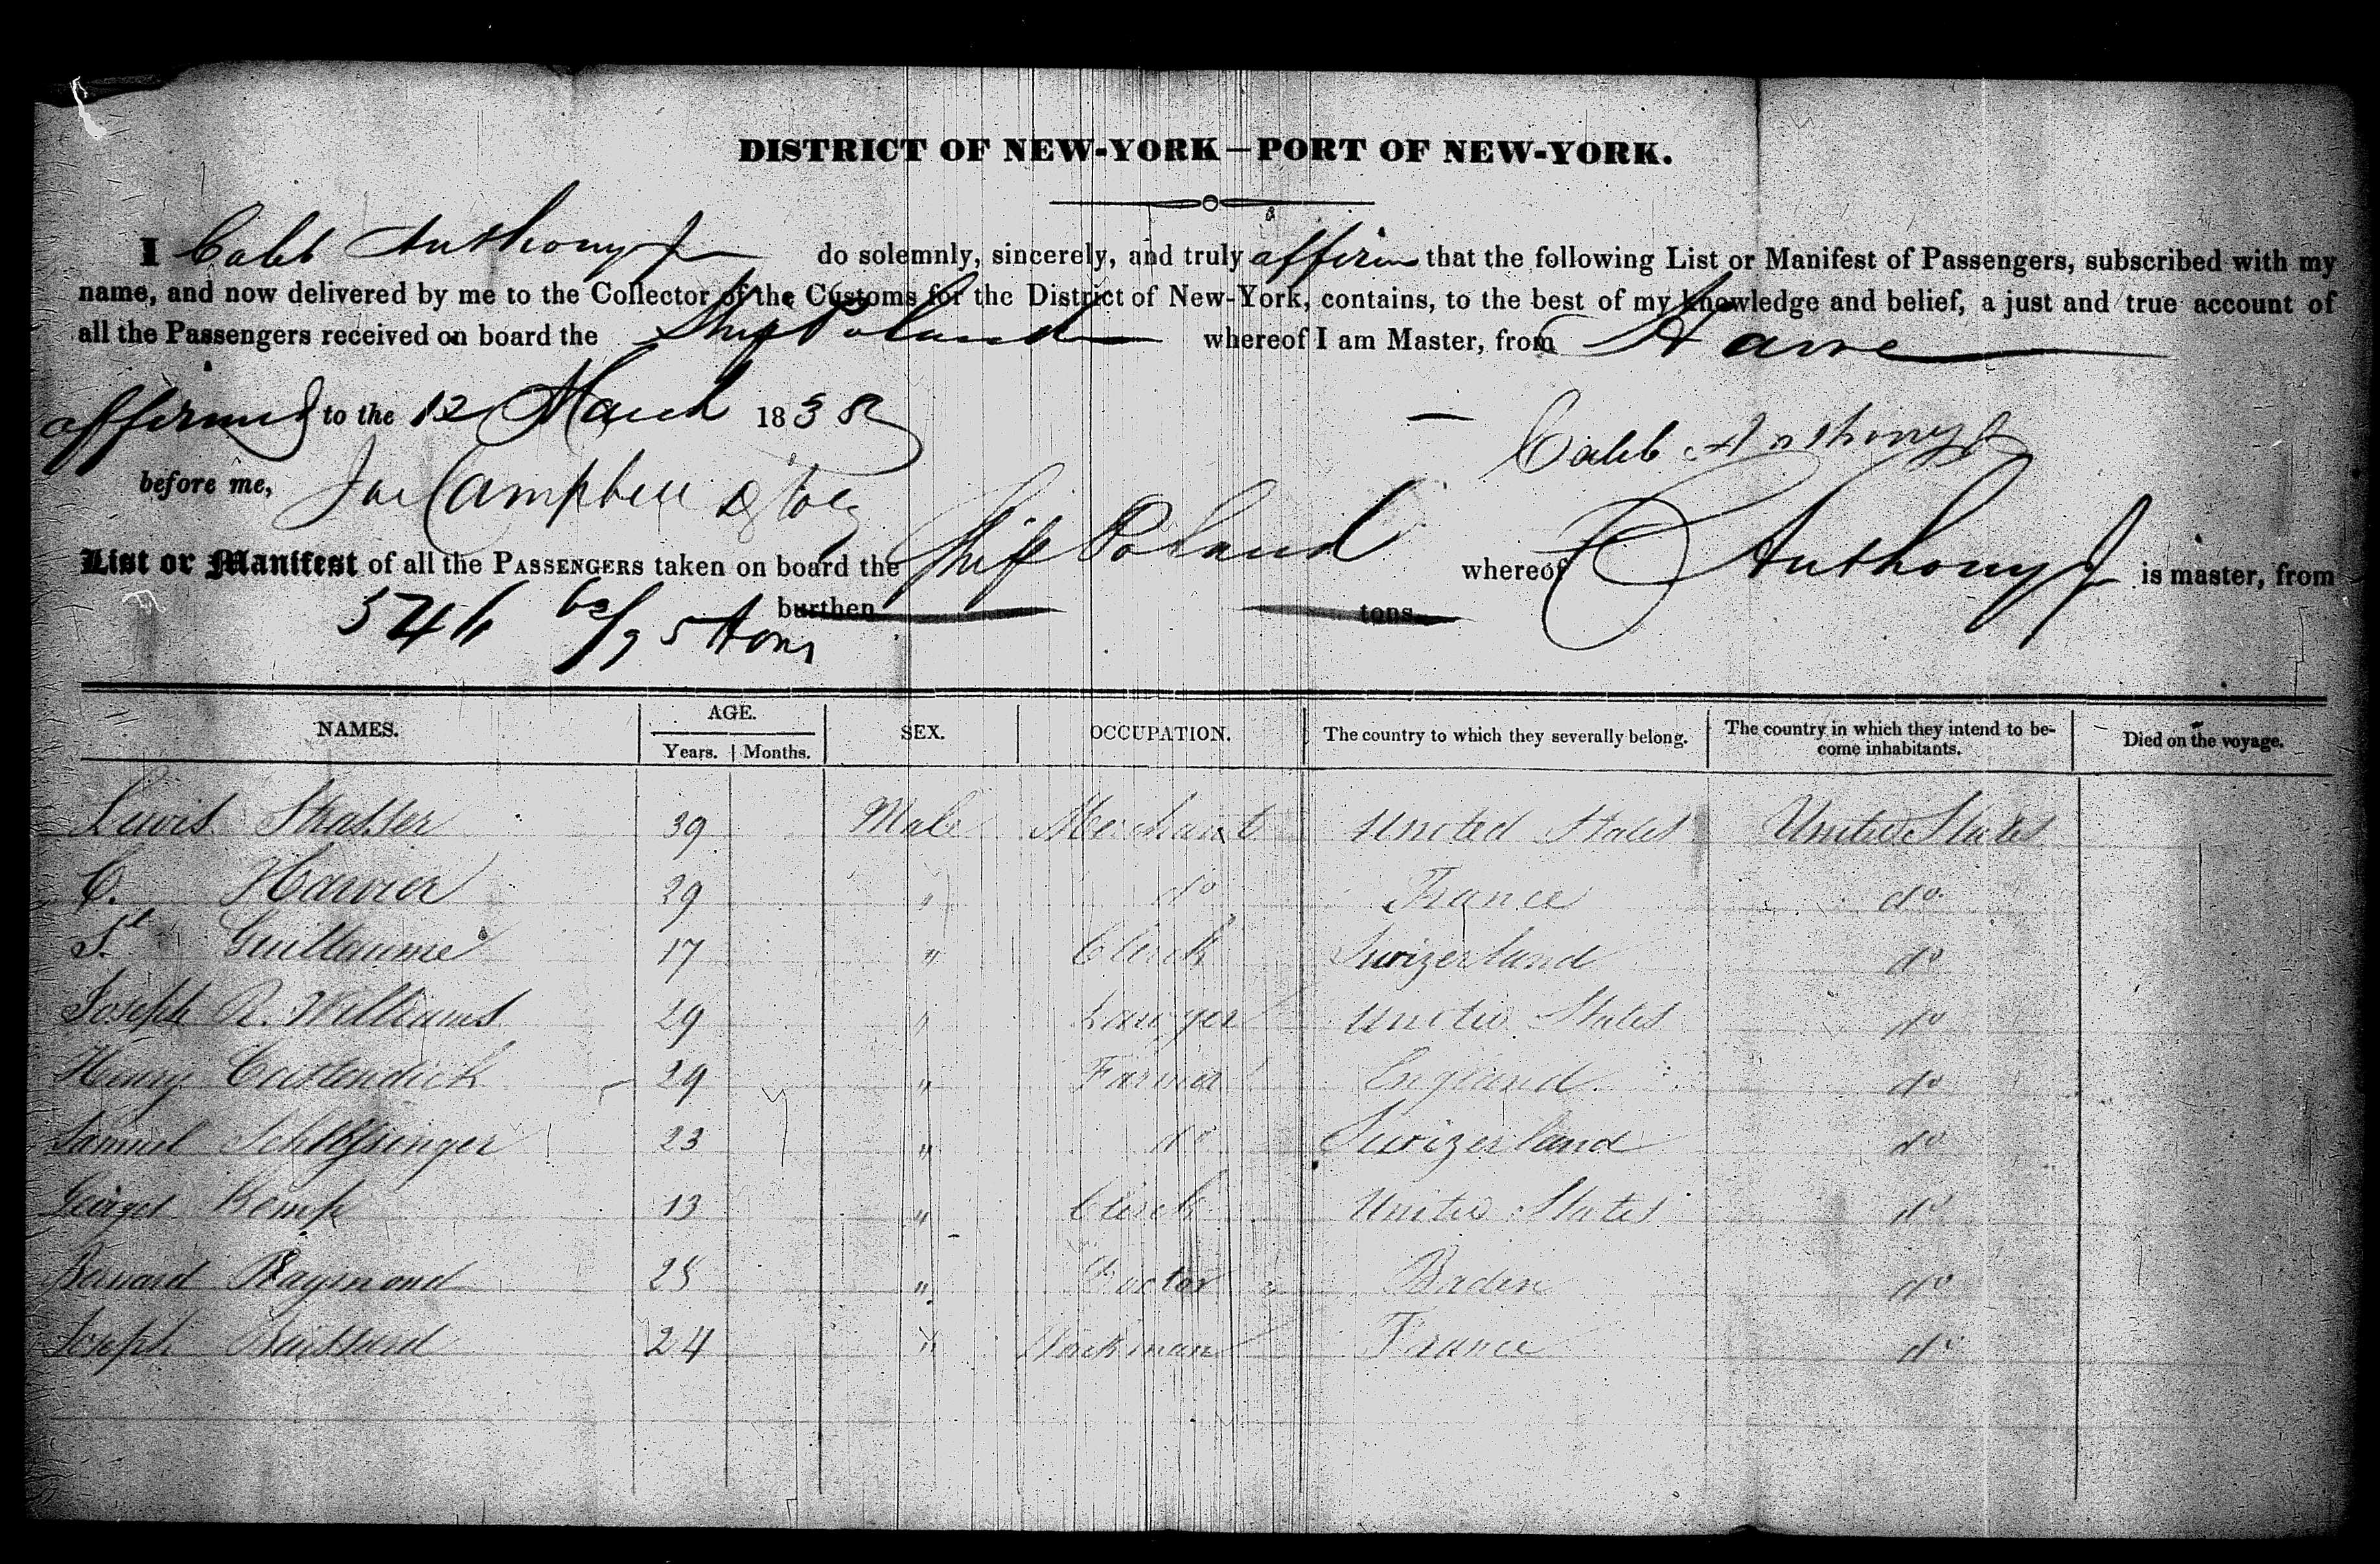 DISTRICT OF NEW-YORK—PORT OF NEW-YORK.
I Caleb Anthony Jr do solemnly, sincerely, and truly affirm that the following List or Manifest of Passengers, subscribed with my
name, and now delivered by me to the Collector of the Customs for the District of New-York, contains, to the best of my knowledge and belief, a just and true account of
all the Passengers received on board the Ship Poland whereof I am Master, from Havre
affirmed to the 12 March 1838
Caleb Anthony Jr
before me, Campbell
List or Manifest of all the PASSENGERS taken on board the Ship Poland whereof C Anthony Jr is master, from
burthen tons
546 /95 tons
NAMES. AGE. SEX. OCCUPATION. The country to which they severally belong. The country in which they intend to be- Died on the voyage.
Years. Months. come inhabitants.
Lewis Strasser 39 Male Merchant United States United States
C. Harrier 29 " do France do
Guillaume 17 " Clerk Swizerland do
Joseph R. Williams 29 " Lawyer United States do
Henry Castendick 29 " Farmer England do
Samuel 23 " do Swizerland do
Georges Kemp 13 " Clerk United States do
Bernard Raymond 25 " Doctor Baden do
Joseph 24 " Workman France do